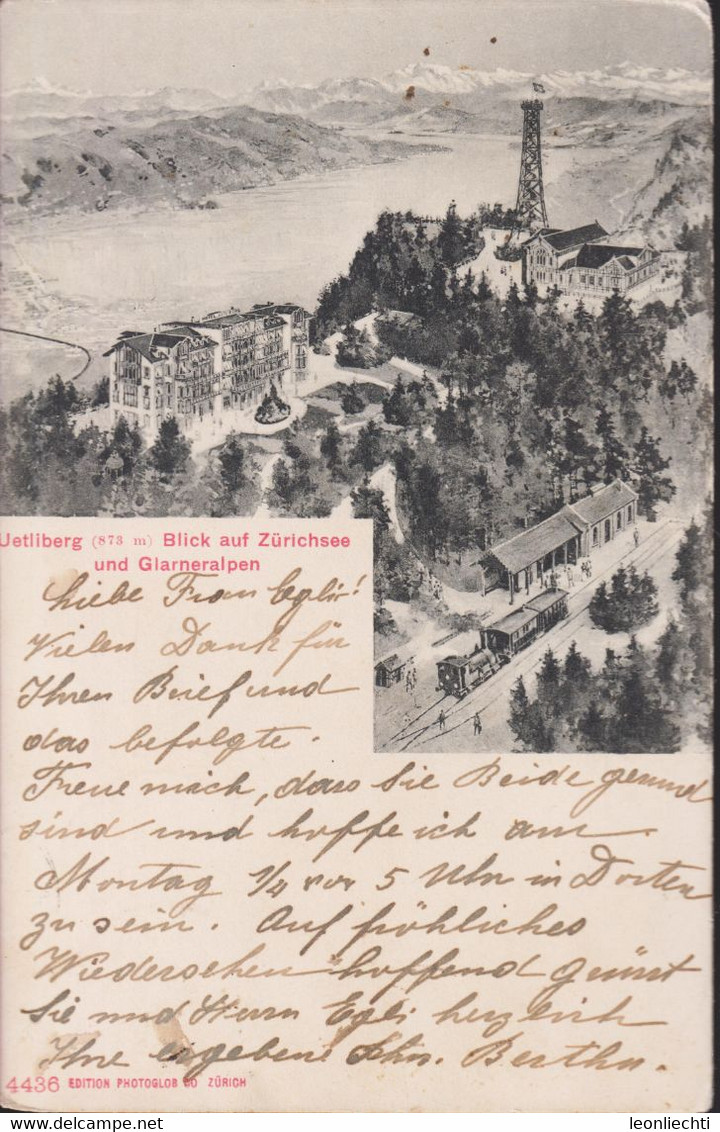 Uetliberg (873 m) Blick auf Zürichsee
und Glarneralpen
Liebe Frau Egli!
Vielen Dank für
Ihren Brief und
das befolgte.
Freue mich, dass Sie Beide gesund
sind und hoffe ich am
Montag 1/4 vor 5 Uhr in Dorten
zu sein. Auf fröhliches
Wiedersehen hoffend grüsst
Sie und Herrn Egli herzlich
Ihre ergebene Schw. Bertha.
4436 EDITION PHOTOGLOB CO ZÜRICH
leonliechti